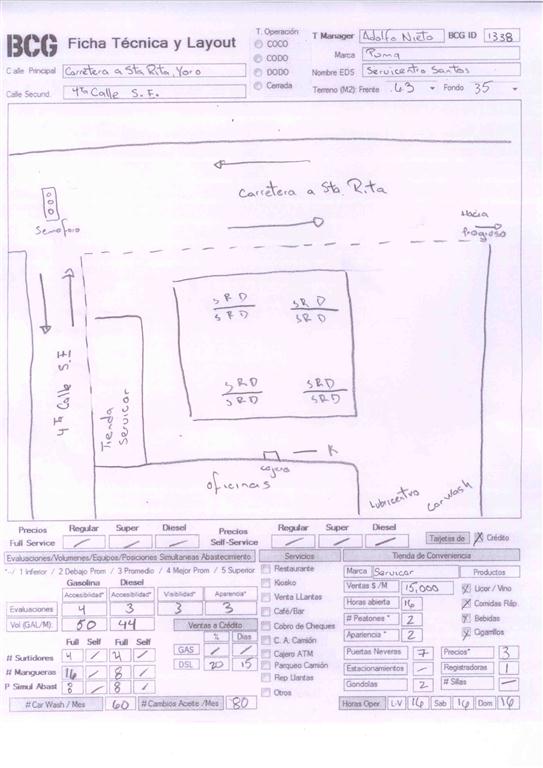 BCG Ficha Técnica y Layout
T. Operación
COCO
CODO
DODO
Cerrada
T Manager Adolfo Nieto BCG ID 1338
Marca Puma
Calle Principal Carretera a Sta Rita, Yoro
Nombre EDS Servicentro Santos
Calle Secund. 4ta Calle S.E.
Terreno (M2): Frente 63 Fondo 35
Carretera a Sta. Rita
Semaforo
Hacia
Progreso
4ta Calle S.E
Tienda
Servicar
S R D S R D
S R D S R D
S R D S R D
S R D S R D
K
cajero
oficinas
Lubricentro
Car Wash
Precios Regular Super Diesel Precios Regular Super Diesel
Full Service / / / Self-Service / / / Tarjetas de X Crédito
Evaluaciones/Volumenes/Equipos/Posiciones Simultaneas Abastecimiento
*--/ 1 Inferior / 2 Debajo Prom / 3 Promedio / 4 Mejor Prom / 5 Superior
Gasolina Diesel
Accesibilidad* Accesibilidad* Visibilidad* Aparencia*
Evaluaciones 4 3 3 3
Vol (GAL/M): 50 44 Ventas a Crédito
Full Self Full Self % Dias
# Surtidores 4 / 4 / GAS / /
# Mangueras 16 / 8 / DSL 20 15
P Simul Abast 8 / 8 /
# Car Wash / Mes 60 # Cambios Aceite /Mes 80
Servicios
Restaurante
Kiosko
Venta LLantas
Café/Bar
Cobro de Cheques
C. A. Camión
Cajero ATM
Parqueo Camión
Rep Llantas
Otros
Tienda de Conveniencia
Marca Servicar Productos
Ventas $ /M 15,000 Licor / Vino
Horas abierta 16 Comidas Ráp
# Peatones * 2 Bebidas
Apariencia * 2 Cigarrillos
Puertas Neveras 7 Precios* 3
Estacionamientos - Registradoras 1
Gondolas 2 # Sillas -
Horas Oper. L-V 16 Sab 16 Dom 16